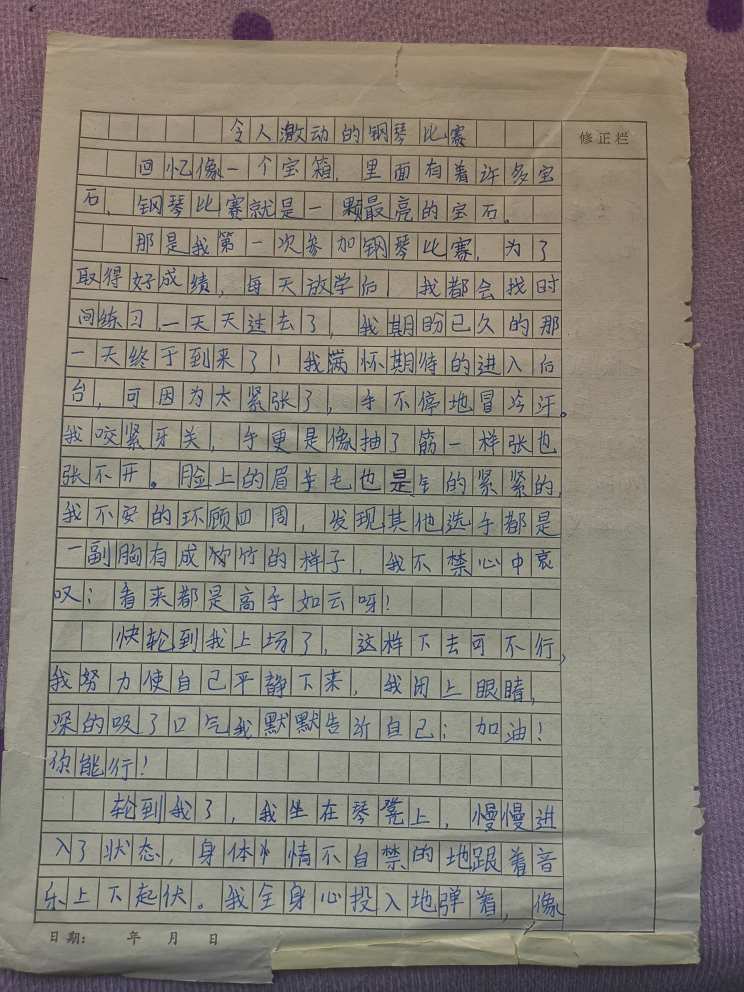 令人激动的钢琴比赛
修正栏
回忆像一个宝箱，里面有着许多宝
石，钢琴比赛就是一颗最亮的宝石。
那是我第一次参加钢琴比赛，为了
取得好成绩，每天放学后，我都会找时
间练习，一天天过去了，我期盼已久的那
一天终于到来了！我满怀期待的进入后
台，可因为太紧张了，手不停地冒冷汗。
我咬紧牙关，手更是像抽了筋一样张也
张不开。脸上的眉毛也是的紧紧的，
我不安的环顾四周，发现其他选手都是
一副胸有成竹的样子，我不禁心中哀
叹：看来都是高手如云呀！
快轮到我上场了，这样下去可不行，
我努力使自己平静下来，我闭上眼睛，
深的吸了口气我默默告诉自己：加油！
你能行！
轮到我了，我坐在琴凳上，慢慢进
入了状态，身体情不自禁的地跟着音
乐上下起伏。我全身心投入地弹着，像
日期： 年 月 日